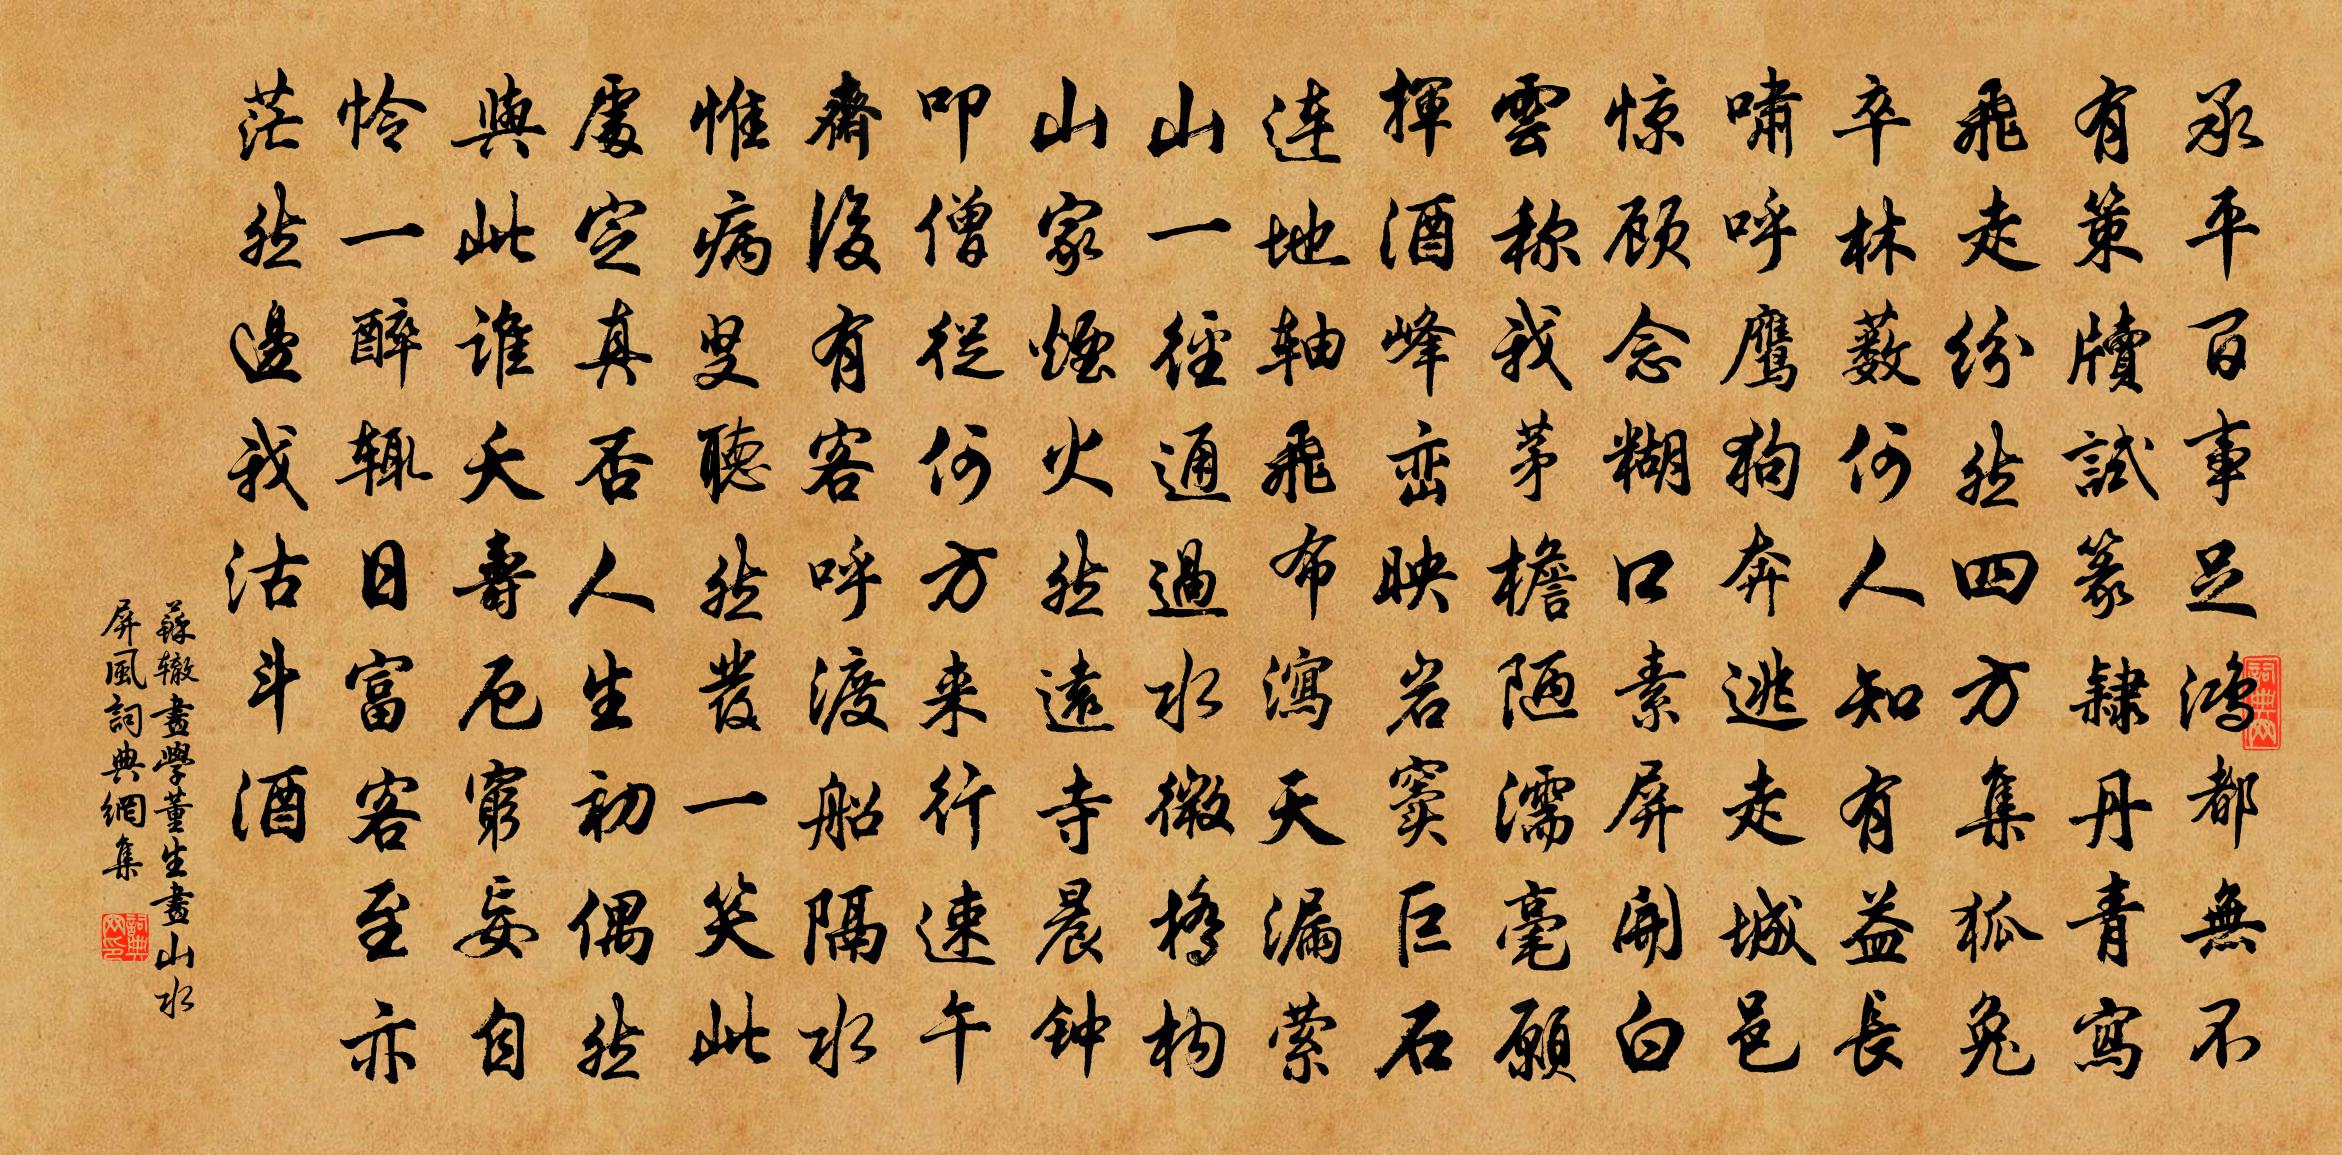 承平百事足鴻都無不
有策牘試篆隸丹青寫
飛走紛然四方集狐兔
卒林薮何人知有益長
嘯呼鹰狗奔逃走城邑
惊顾念糊口素屏開白
雲称我茅檐陋濡毫願
揮酒峰峦映岩窦巨石
连地轴飛布瀉天漏萦
山一徑通過水微橋构
山家煙火然遠寺晨钟
叩僧從何方来行速午
齋後有客呼渡船隔水
惟病叟聽然發一笑此
處定真否人生初偶然
與此誰夭壽厄窮妄自
怜一醉辄日富客至亦
茫然邊我沽斗酒
蘇辙畫學董生畫山水
屏風詞典網集
詞典网